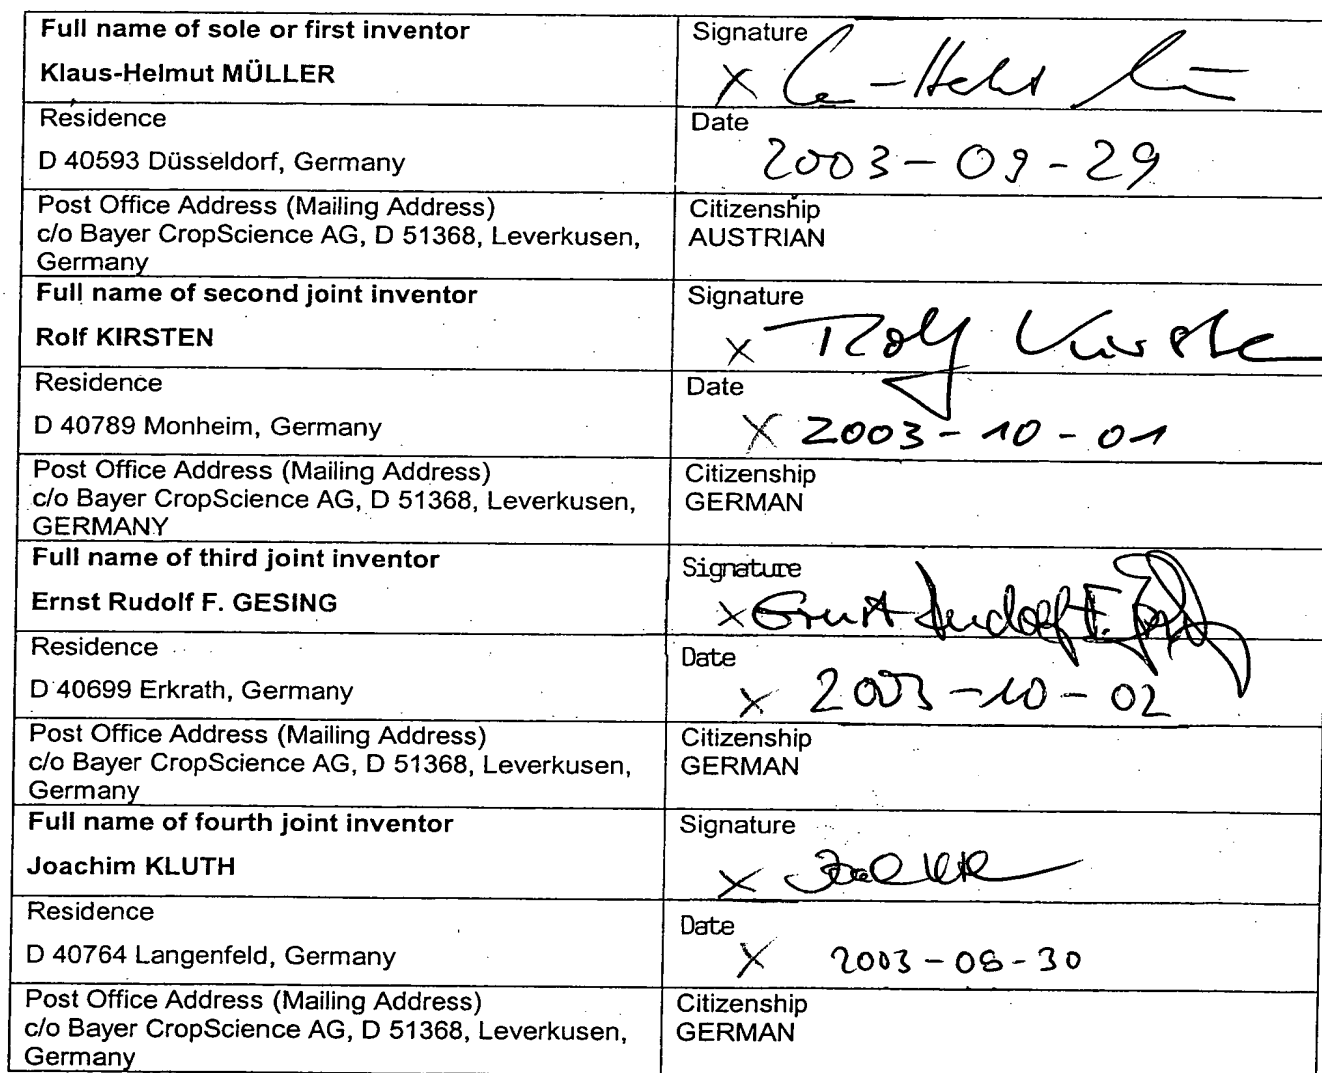 Full name of sole or first inventor
Klaus-Helmut MÜLLER
Signature
X
Residence
D 40593 Düsseldorf, Germany
Date
2003-09-29
Post Office Address (Mailing Address)
c/o Bayer CropScience AG, D 51368, Leverkusen,
Germany
Citizenship
AUSTRIAN
Full name of second joint inventor
Rolf KIRSTEN
Signature
X Rolf Kirsten
Residence
D 40789 Monheim, Germany
Date
X 2003-10-01
Post Office Address (Mailing Address)
c/o Bayer CropScience AG, D 51368, Leverkusen,
GERMANY
Citizenship
GERMAN
Full name of third joint inventor
Ernst Rudolf F. GESING
Signature
X Ernst Rudolf F.
Residence
D 40699 Erkrath, Germany
Date
X 2003-10-02
Post Office Address (Mailing Address)
c/o Bayer CropScience AG, D 51368, Leverkusen,
Germany
Citizenship
GERMAN
Full name of fourth joint inventor
Joachim KLUTH
Signature
X
Residence
D 40764 Langenfeld, Germany
Date
X
Post Office Address (Mailing Address)
c/o Bayer CropScience AG, D 51368, Leverkusen,
Germany
Citizenship
GERMAN